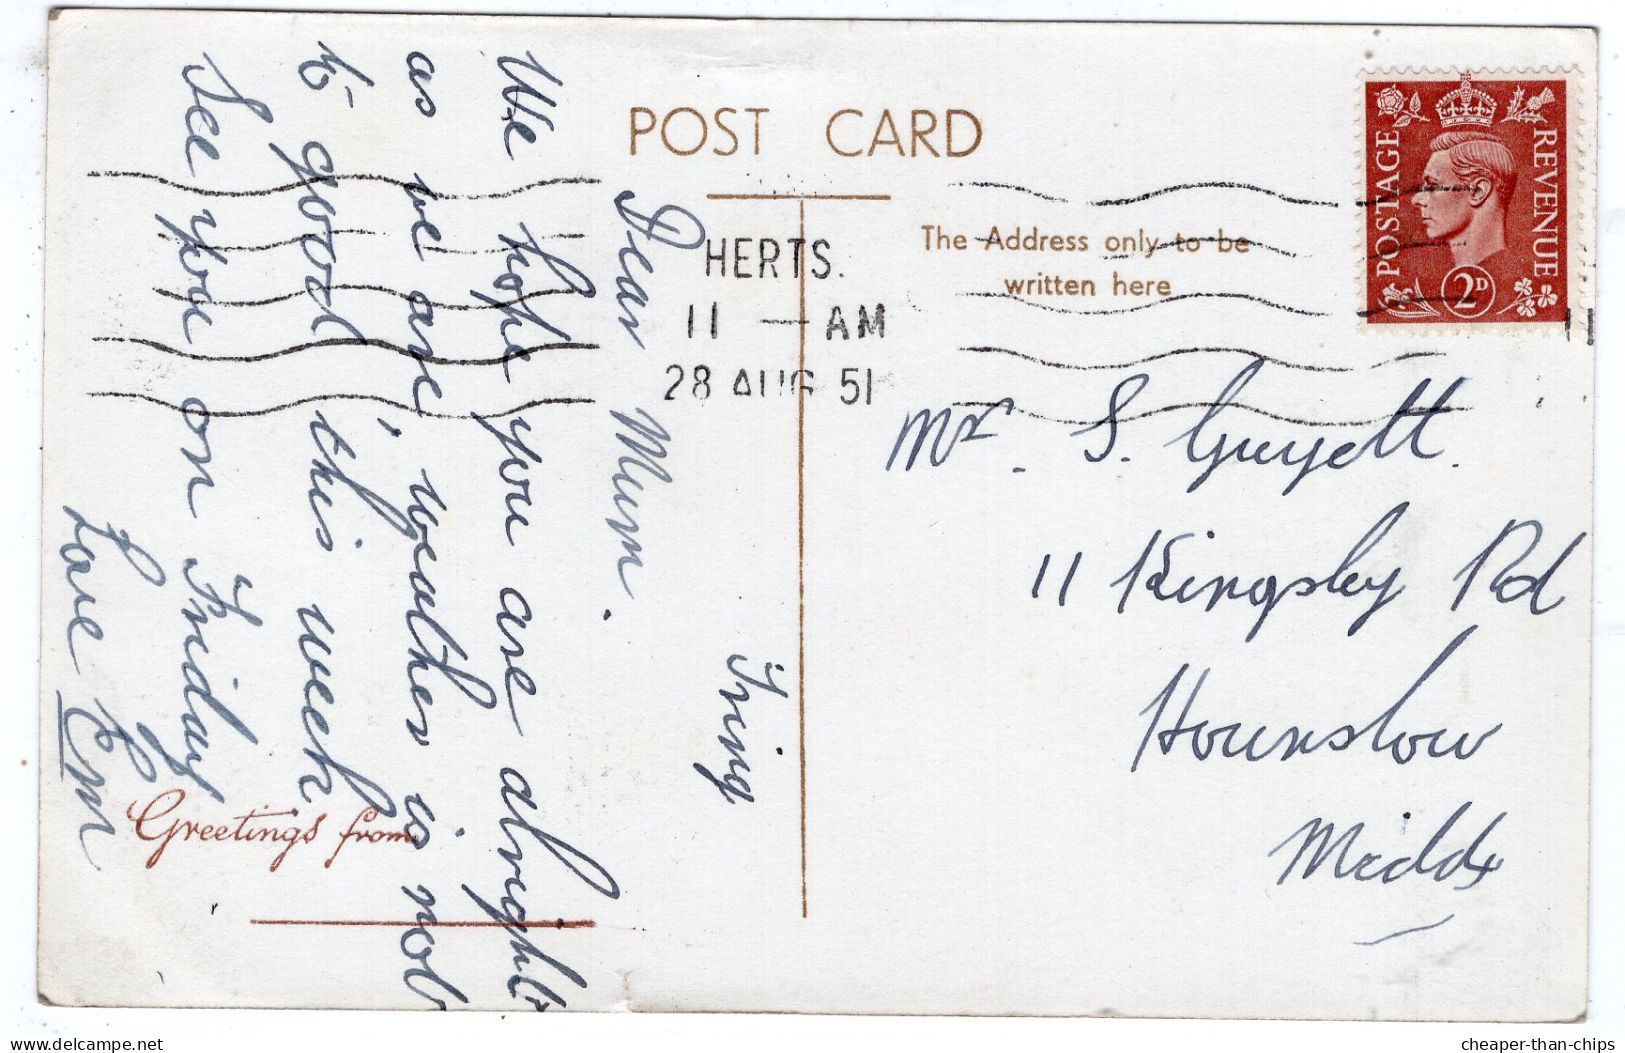 POST CARD
The Address only to be
written here
POSTAGE
REVENUE
2D
HERTS.
11 — AM
28 AUG 51
11
Mr. S. Guyett.
11 Kingsley Rd
Hounslow
Middx
Tring
Dear Mum.
We hope you are alright
as we are, weather is not
to good this week
See you on Friday
Love Em
Greetings from
delcampe.net
cheaper-than-chips